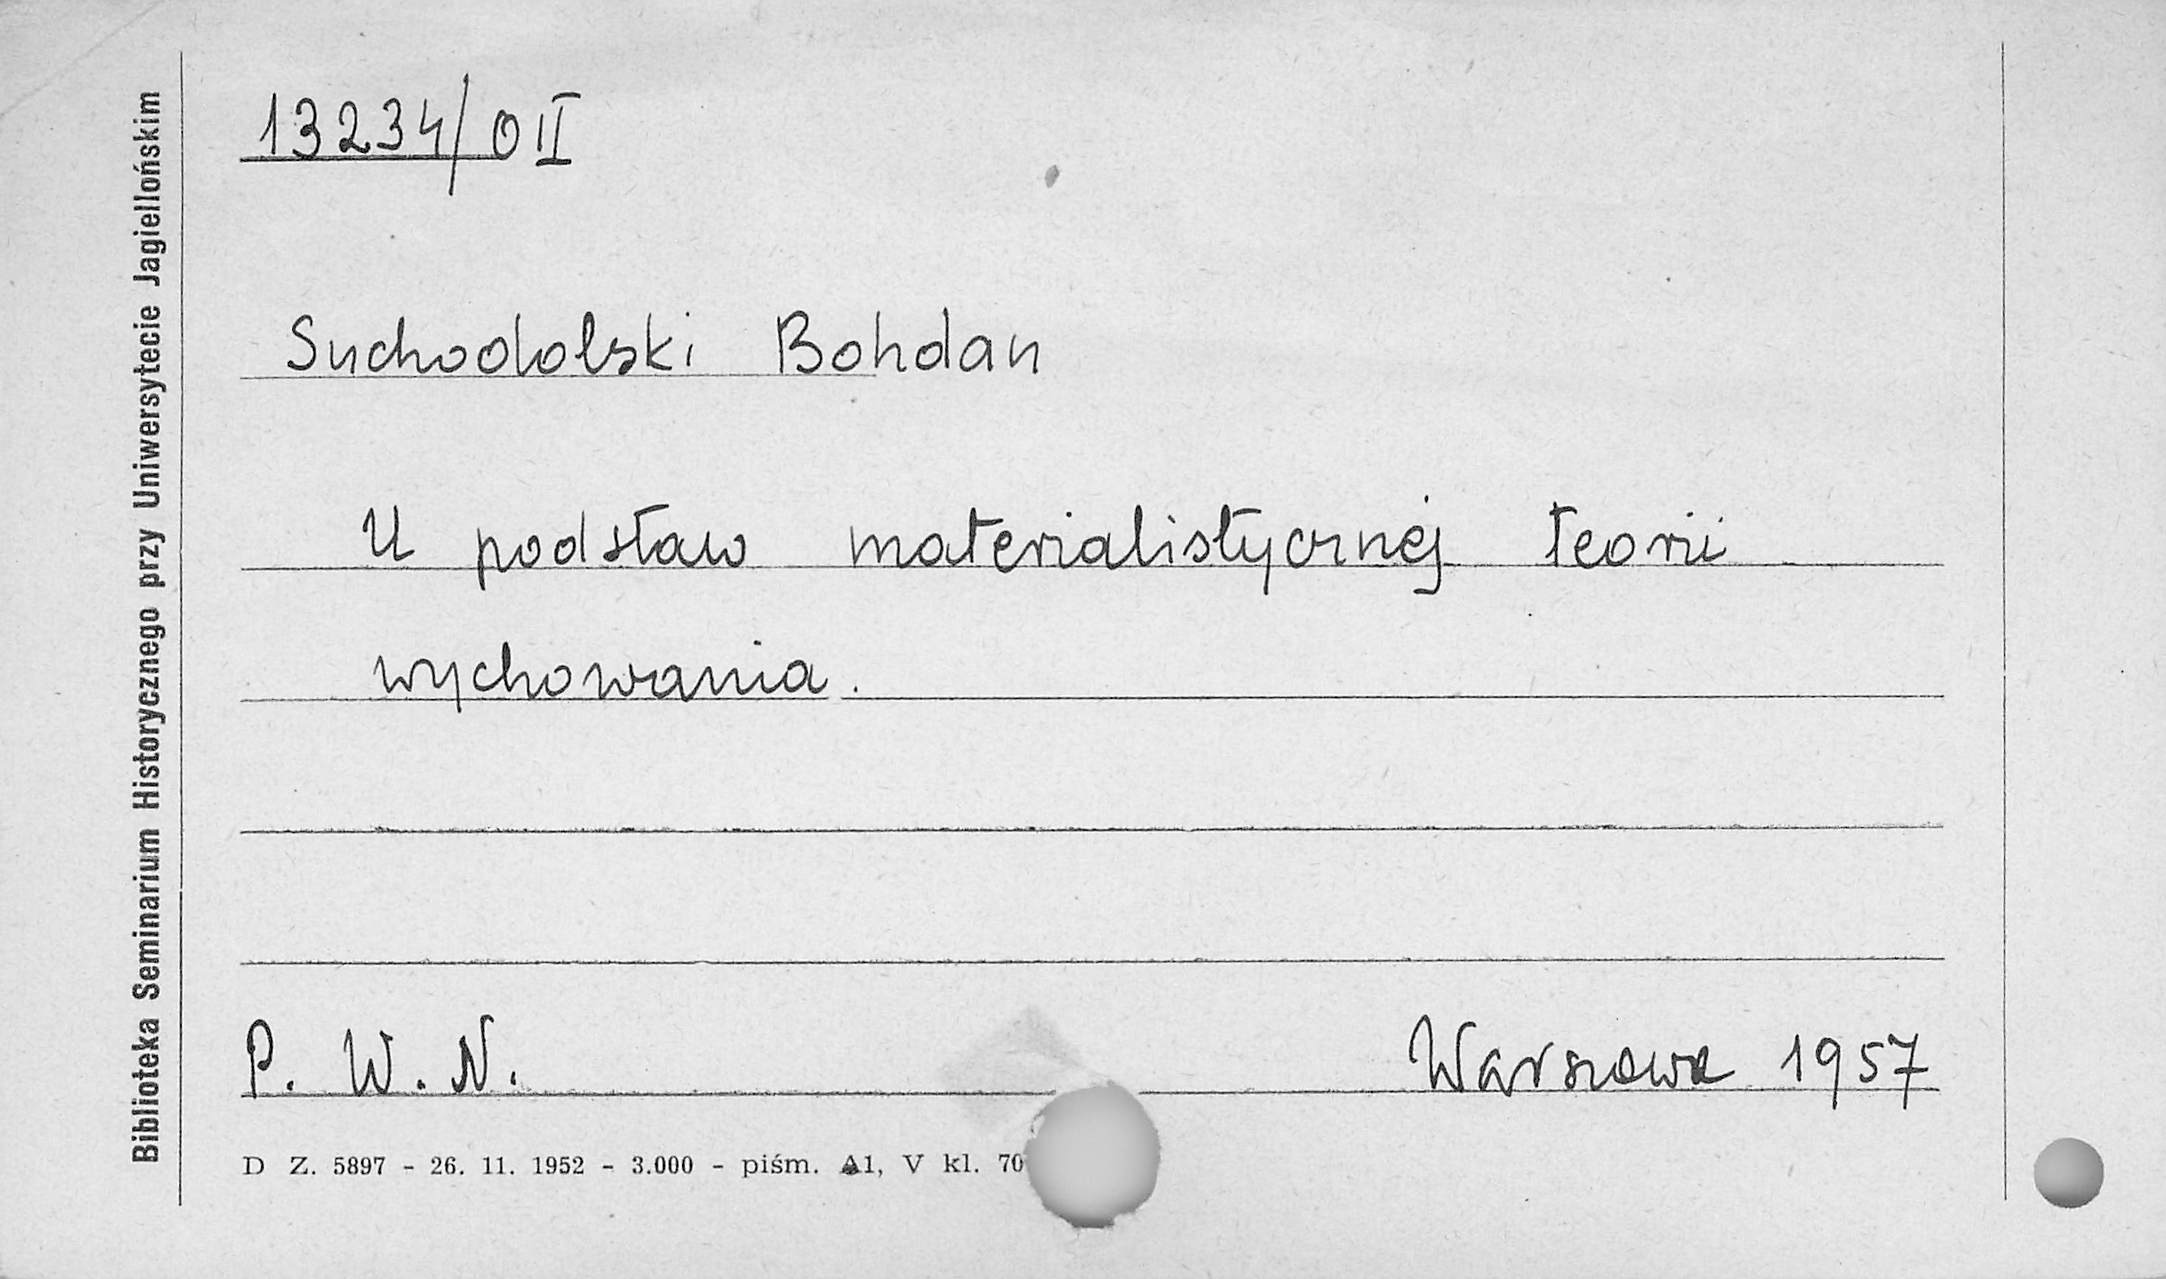 Biblioteka Seminarium Historycznego przy Uniwersytecie Jagiellońskim
13234/O II
Suchodolski Bohdan
U podstaw materialistycznej teorii
wychowania.
P. W. N. Warszawa 1957
D Z. 5897 - 26. 11. 1952 - 3.000 - piśm. A1, V kl. 70